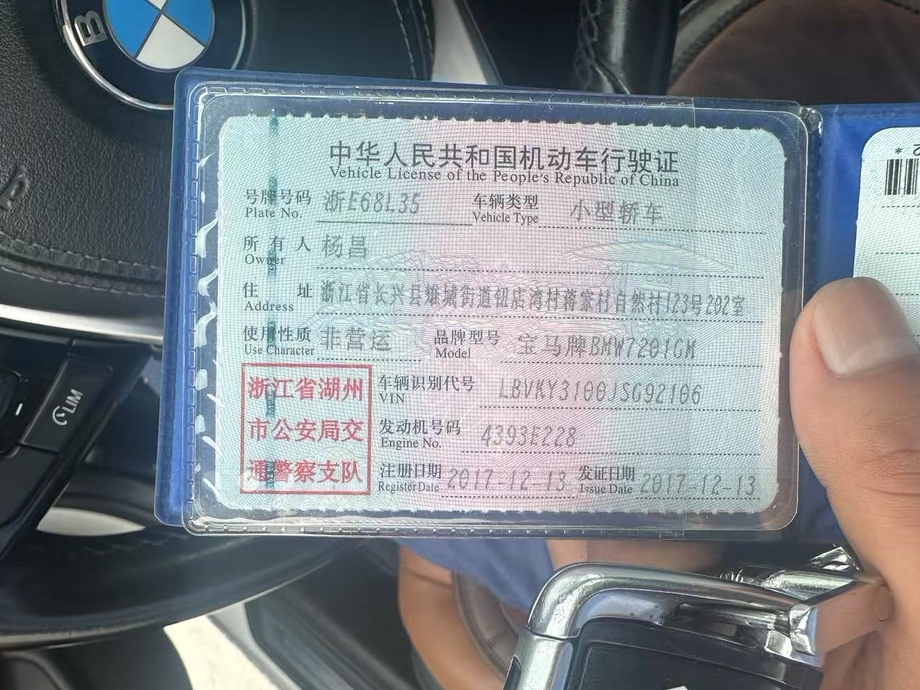 B
LIM
中华人民共和国机动车行驶证
Vehicle License of the People's Republic of China
号牌号码 浙E68L35 车辆类型 小型轿车
Plate No. Vehicle Type
所有人 杨昌
Owner
住址 浙江省长兴县雉城街道钮店湾村蒋家村自然村123号202室
Address
使用性质 非营运 品牌型号 宝马牌BMW7201GM
Use Character Model
浙江省湖州
市公安局交
通警察支队
车辆识别代号 LBVKY3100JSG92106
VIN
发动机号码 4393E228
Engine No.
注册日期 2017-12-13 发证日期 2017-12-13
Register Date Issue Date